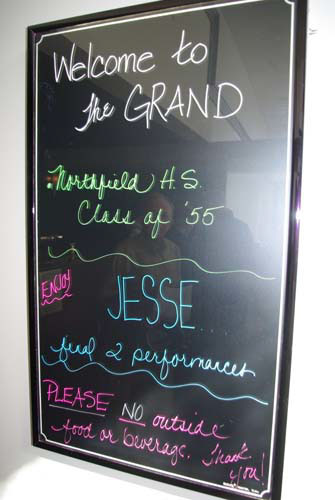 Welcome to
the GRAND
• Northfield H.S.
Class of '55
ENJOY
JESSE...
final 2 performances
PLEASE NO outside
food or beverage. Thank
you!